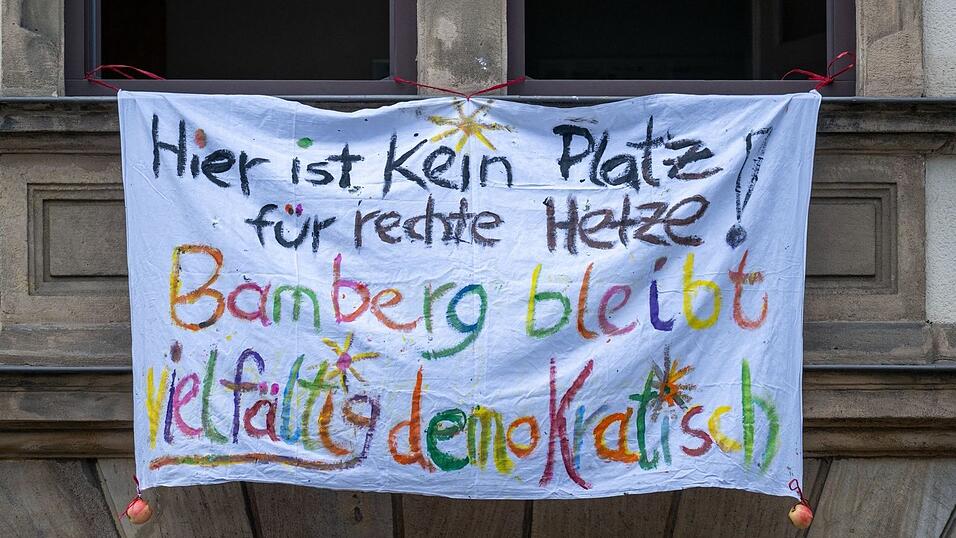 Hier ist kein Platz!
für rechte Hetze
Bamberg bleibt
vielfältig demokratisch